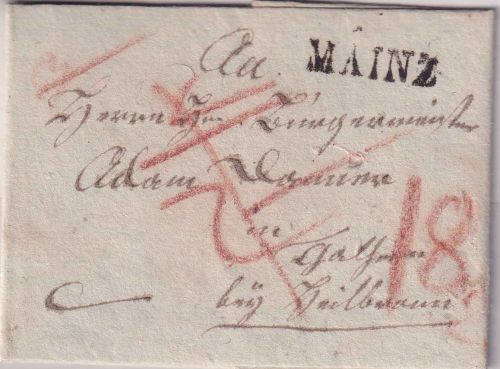 An
MAINZ
Herrn Bürgermeister
Adam
in
18
bey Heilbronn